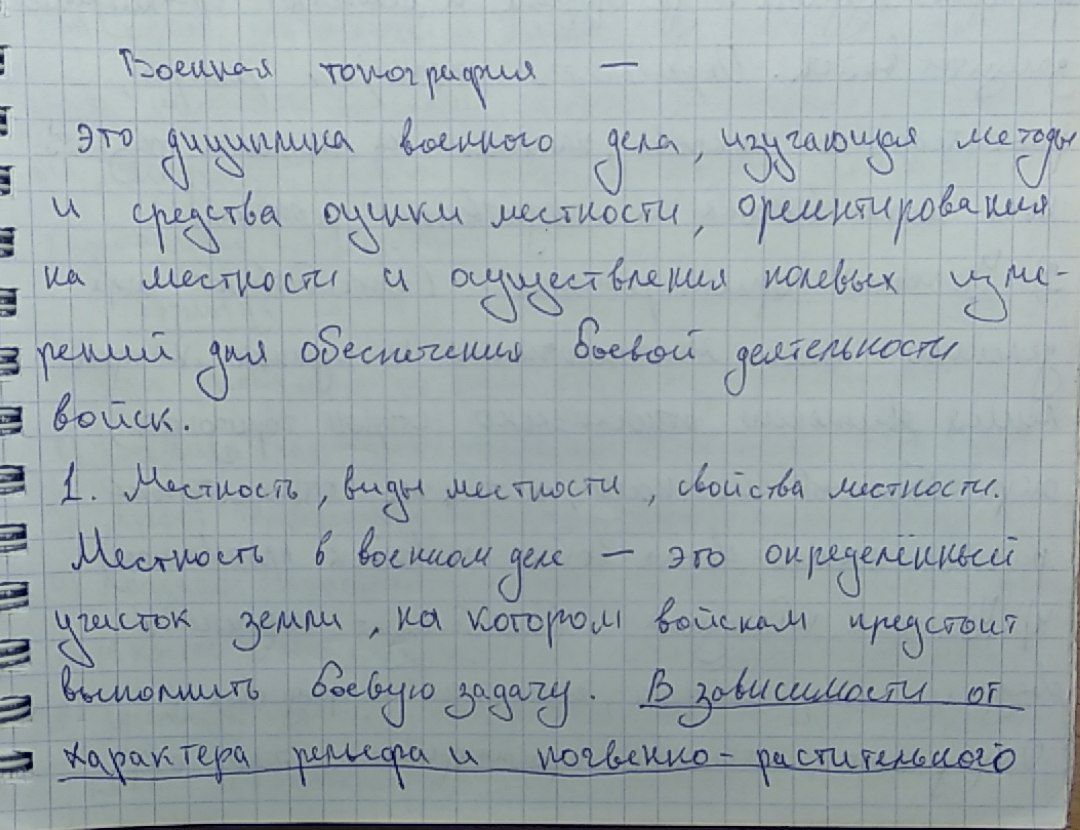 Военная топография —
это дициплина военного дела, изучающая методы
и средства оценки местности, ориентирования
на местности и осуществления полевых изме-
рений для обеспечения боевой деятельности
войск.
1. Местность, виды местности, свойства местности.
Местность в военном деле — это определённый
участок земли, на котором войскам предстоит
выполнить боевую задачу. В зависимости от
характера рельефа и почвенно-растительного